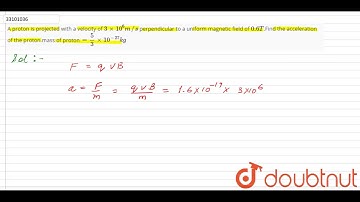 33101036
A proton is projected with a velocity of 3 × 10⁶ m / s perpendicular to a uniform magnetic field of 0.6T.Find the acceleration
of the proton.mass of proton. = 5/3 × 10⁻²⁷ kg
Sol :-
F = q v B
a = F/m = q v B/m = 1.6 × 10⁻¹⁹ × 3×10⁶
doubtnut